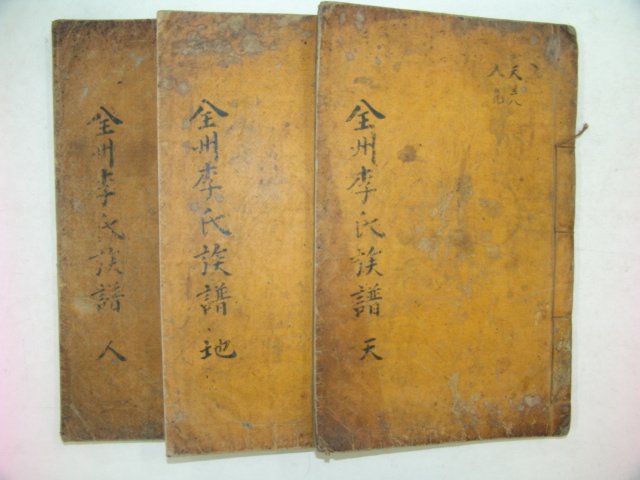 全州李氏族譜 天
全州李氏族譜 地
全州李氏族譜 人
天
人